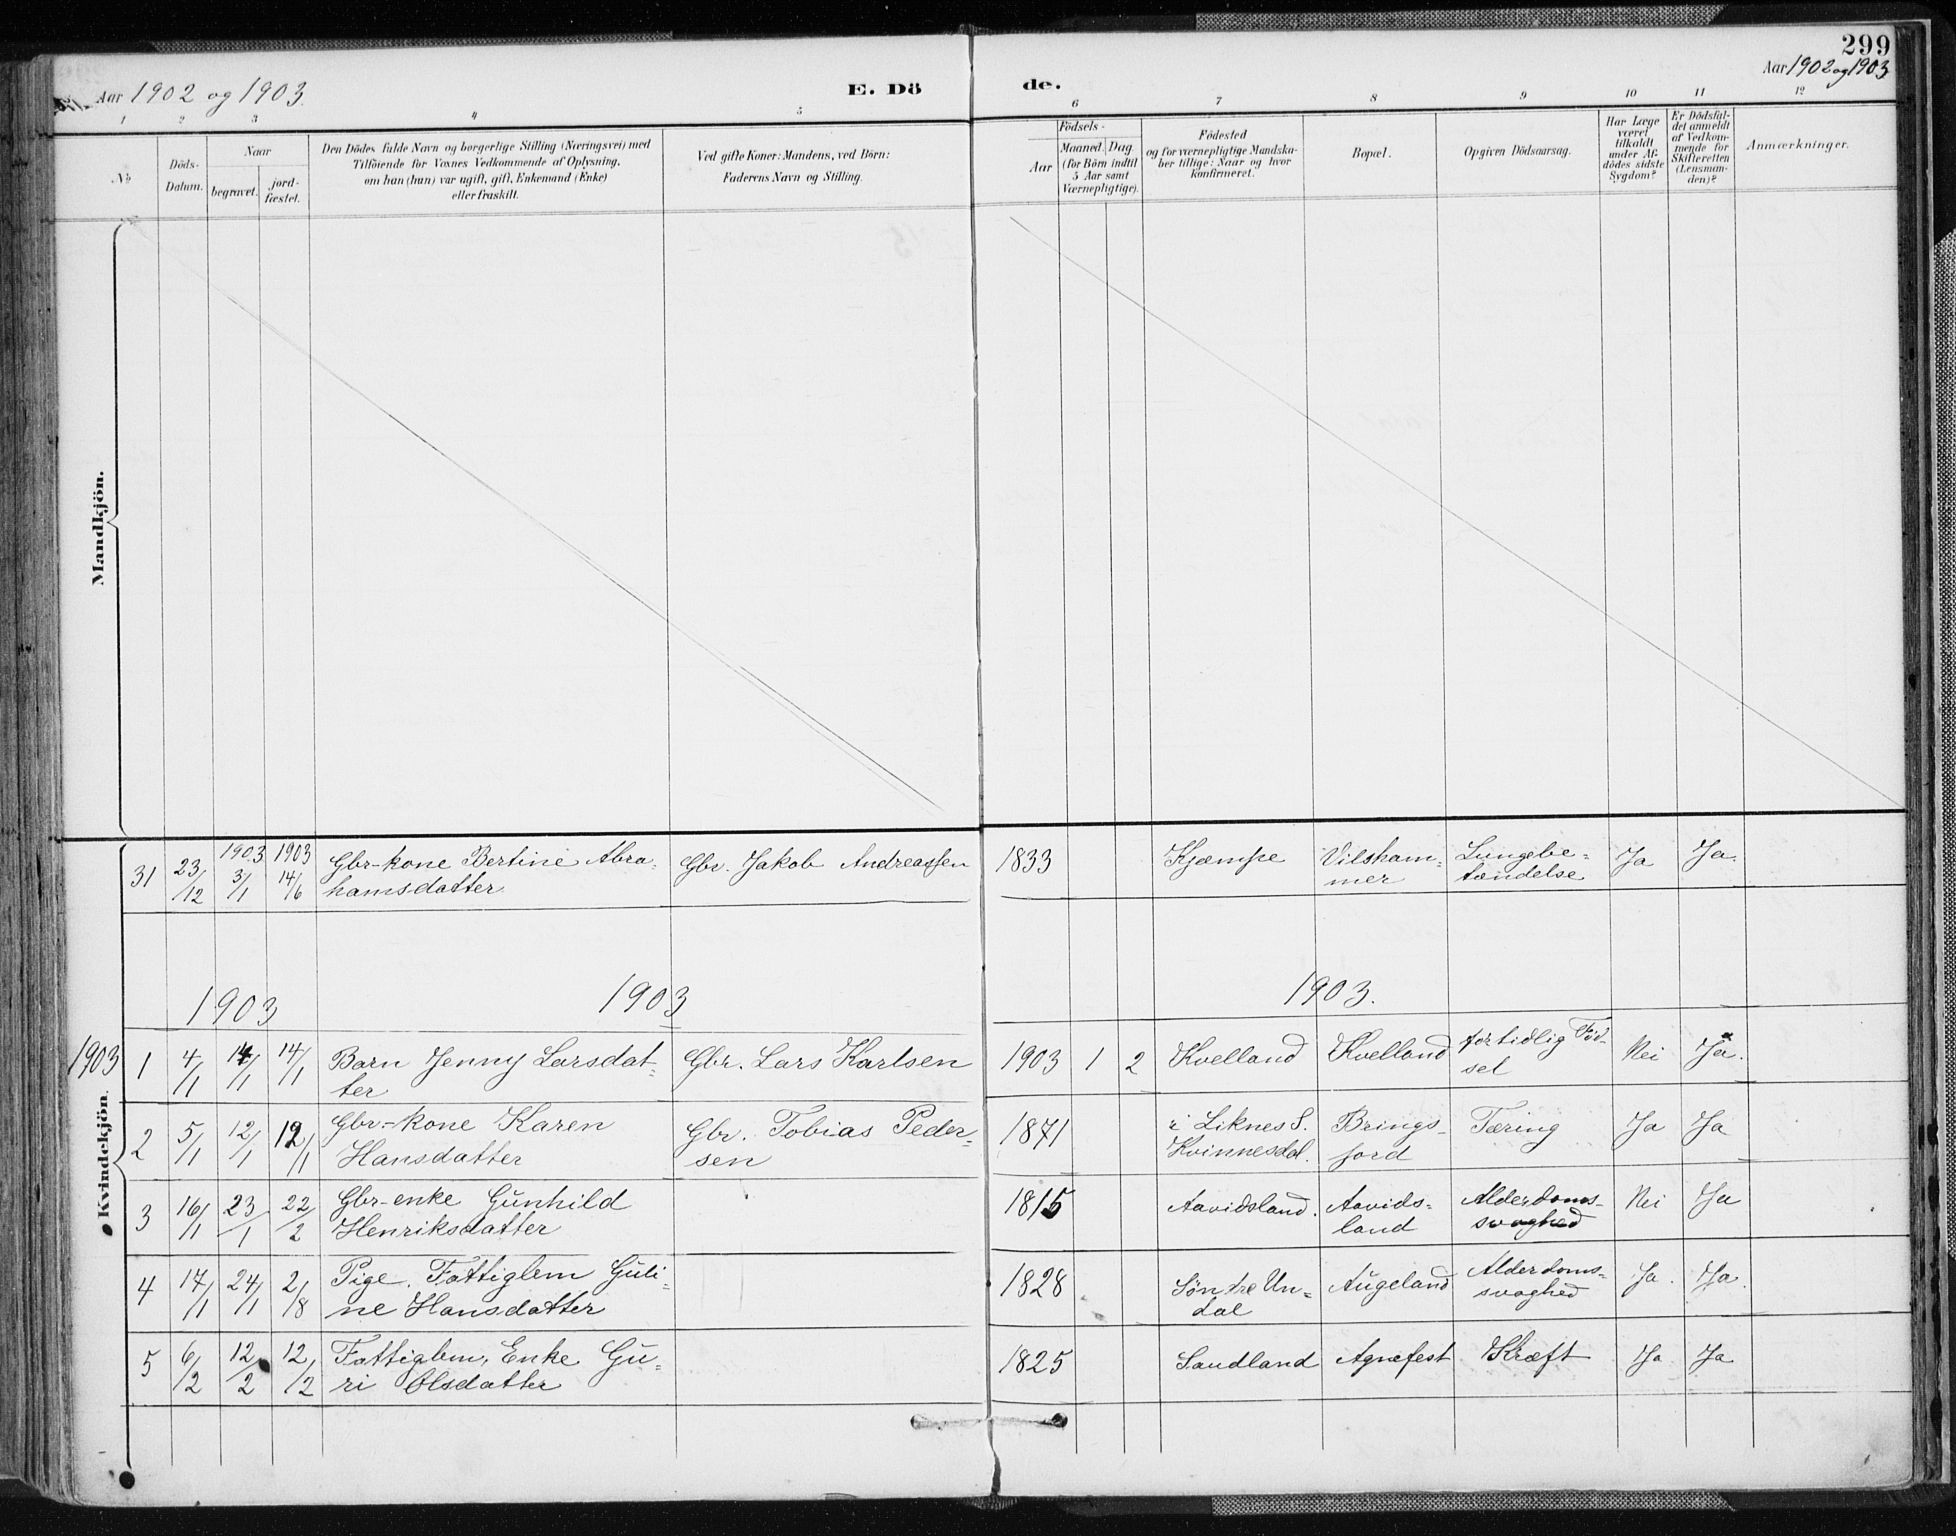 299
Aar 1902 og 1903
E. Dö
de.
Aar 1902 og 1903
1 2 3 4 5 6 7 8 9 10 11 12
No
Döds-
Datum.
Naar
begravet.
jord-
fæstet.
Den Dödes fulde Navn og borgerlige Stilling (Næringsvei) med
Tilföiende for Voxnes Vedkommende af Oplysning,
om han (hun) var ugift, gift, Enkemand (Enke)
eller fraskilt.
Ved gifte Koner: Mandens, ved Börn:
Faderens Navn og Stilling.
Födsels-
Aar
Maaned. Dag.
(for Börn indtil
5 Aar samt
Værnepligtige).
Födested
og for værnepligtige Mandska-
ber tillige: Naar og hvor
konfirmeret.
Bopæl.
Opgiven Dödsaarsag.
Har Læge
været
tilkaldt
under Af-
dödes sidste
Sygdom?
Er Dödsfal-
det anmeldt
af Vedkom-
mende for
Skifteretten
(Lensman-
den)?
Anmærkninger.
Mandkjön.
31 23/12 1903 3/1 1903 14/6 Gbr-kone Bertine Abra-
hamsdatter
Gbr. Jakob Andreassen
1833 Kjæmpe Vilsham-
mer
Lungebe-
tændelse
Ja Ja.
1903 1903 1903.
1903
Kvindekjön.
1 4/1 14/1 14/1 Barn Jenny Larsdat-
ter
Gbr. Lars Karlsen
1903 1 2 Kvelland Kvelland
fortidlig Föd-
sel
Nei Ja.
2 5/1 12/1 12/1 Gbr-kone Karen
Hansdatter
Gbr. Tobias Peder-
sen
1871 i Liknes S.
Kvinnesdal.
Brings-
jord
Tæring Ja Ja
3 16/1 23/1 22/2 Gbr-enke Gunhild
Henriksdatter
1815 Aavidsland. Aavids-
land
Alderdoms-
svaghed
Nei Ja
4 17/1 24/1 2/8 Pige. Fattiglem Guli-
ne Hansdatter
1828 Söndre Un-
dal
Augeland
Alderdoms-
svaghed
Ja. Ja.
5 6/2 12/2 12/2 Fattiglem, Enke Gu-
ri Olsdatter
1825 Sandland Agnefest Kræft Ja Ja